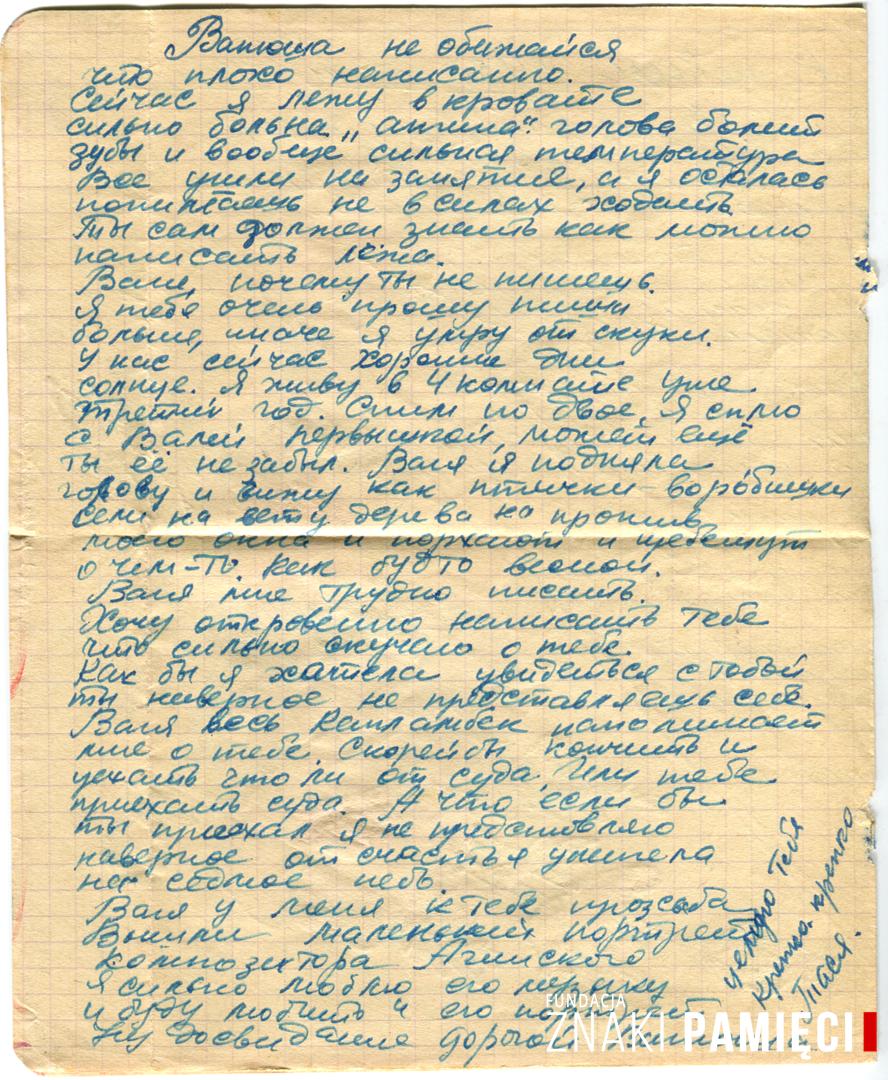 Ванюша не обижайся
что плохо написанно.
Сейчас я лежу в кровате
сильно больна „ангина". голова болит
зубы и вообще сильная температура
Все ушли на занятие, а я осталась
не в силах ходить
Ты сам должен знать как можно
написать лёжа.
Вань, почему ты не пишешь.
Я тебя очень прошу пиши
больше, иначе я умру от скуки.
У нас сейчас хорошие дни
солнце. Я живу в 4 комнате уже
третий год. Спим по двое, я сплю
с Валей первышкой, может ещё
ты её не забыл. Ваня я подняла
голову и вижу как птички-воробышки
сели на дерева на против
моего окна и порхают и щебечут
о чем-то как будто весной.
Ваня мне трудно писать.
Хочу откровенно написать тебе
что сильно скучаю о тебе.
Как бы я хатела увидеться с тобой
ты наверное не представляешь себе.
Ваня весь Каплабмек напоминает
мне о тебе. Скорей бы кончить и
уехать что ли от суда. Или тебе
приехать суда. А что если бы
ты приехал я не представляю
наверное от счастья улетела
на седмое небо.
Ваня у меня к тебе прозьба
Вышли маленький портрет
композитора Агинского
Я сильно люблю его музыку
и буду любить и его портрет
Ну досвидание дорогой
целую тебя
крепко крепко
Тася.
FUNDACJA
ZNAKI PAMIĘCI